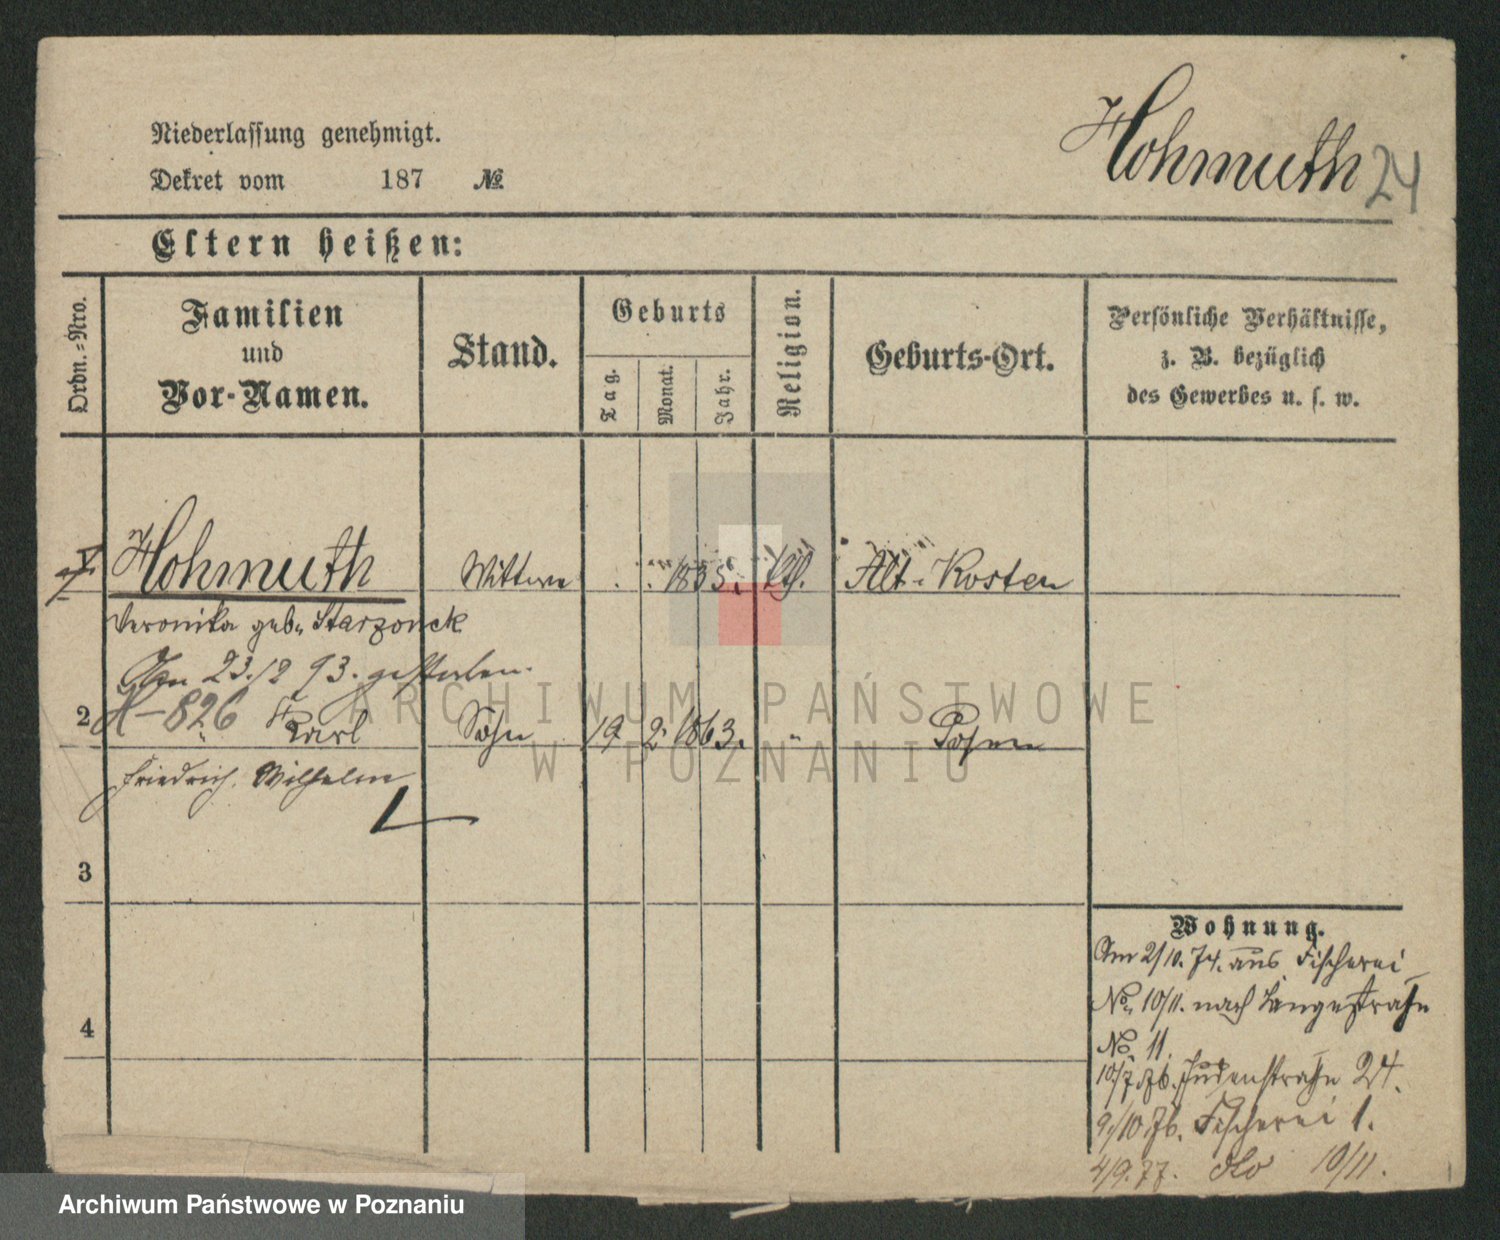 Hohmuth 24
Niederlassung genehmigt.
Dekret vom 187 №
Eltern heißen:
Ordn.-Nro.
Familien
und
Vor-Namen.
Stand.
Geburts
Tag.
Monat.
Jahr.
Religion.
Geburts-Ort.
Persönliche Verhältnisse,
z. B. bezüglich
des Gewerbes u. s. w.
Hohmuth Wittwe 1835. kth. Alt-Kosten
Veronika geb. Starzonek
Am 23.12 93. gestorben.
H-826
2 Karl Sohn 19 2. 1863. " Posen
Friedrich Wilhelm
3
4
Wohnung.
Am 2/10. 74. aus Fischerei
No. 10/11. nach Langestraße
No. 11.
10/7. 76. Judenstraße 24.
9/10 76. Fischerei 1.
4/9. 77. dto 10/11.
ARCHIWUM PAŃSTWOWE
W POZNANIU
Archiwum Państwowe w Poznaniu